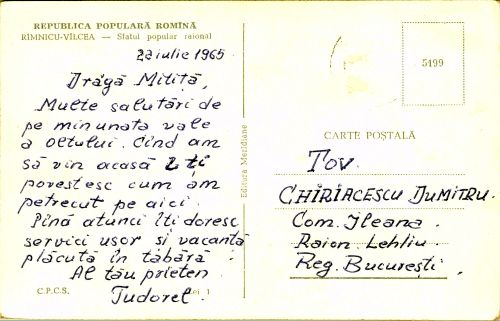 REPUBLICA POPULARĂ ROMÎNĂ
RÎMNICU-VÎLCEA — Sfatul popular raional
22 iulie 1965
Dragă Mitiță,
Multe salutări de
pe minunata vale
a Oltului. Cînd am
să vin acasă îți
povestesc cum am
petrecut pe aici.
Pînă atunci îți doresc
servici ușor și vacanță
plăcută în tabără.
Al tău prieten
Tudorel.
C.P.C.S.
Lei 1
Editura Meridiane
5199
CARTE POȘTALĂ
Tov.
CHIRIACESCU DUMITRU.
Com. Ileana.
Raion. Lehliu.
Reg. București.